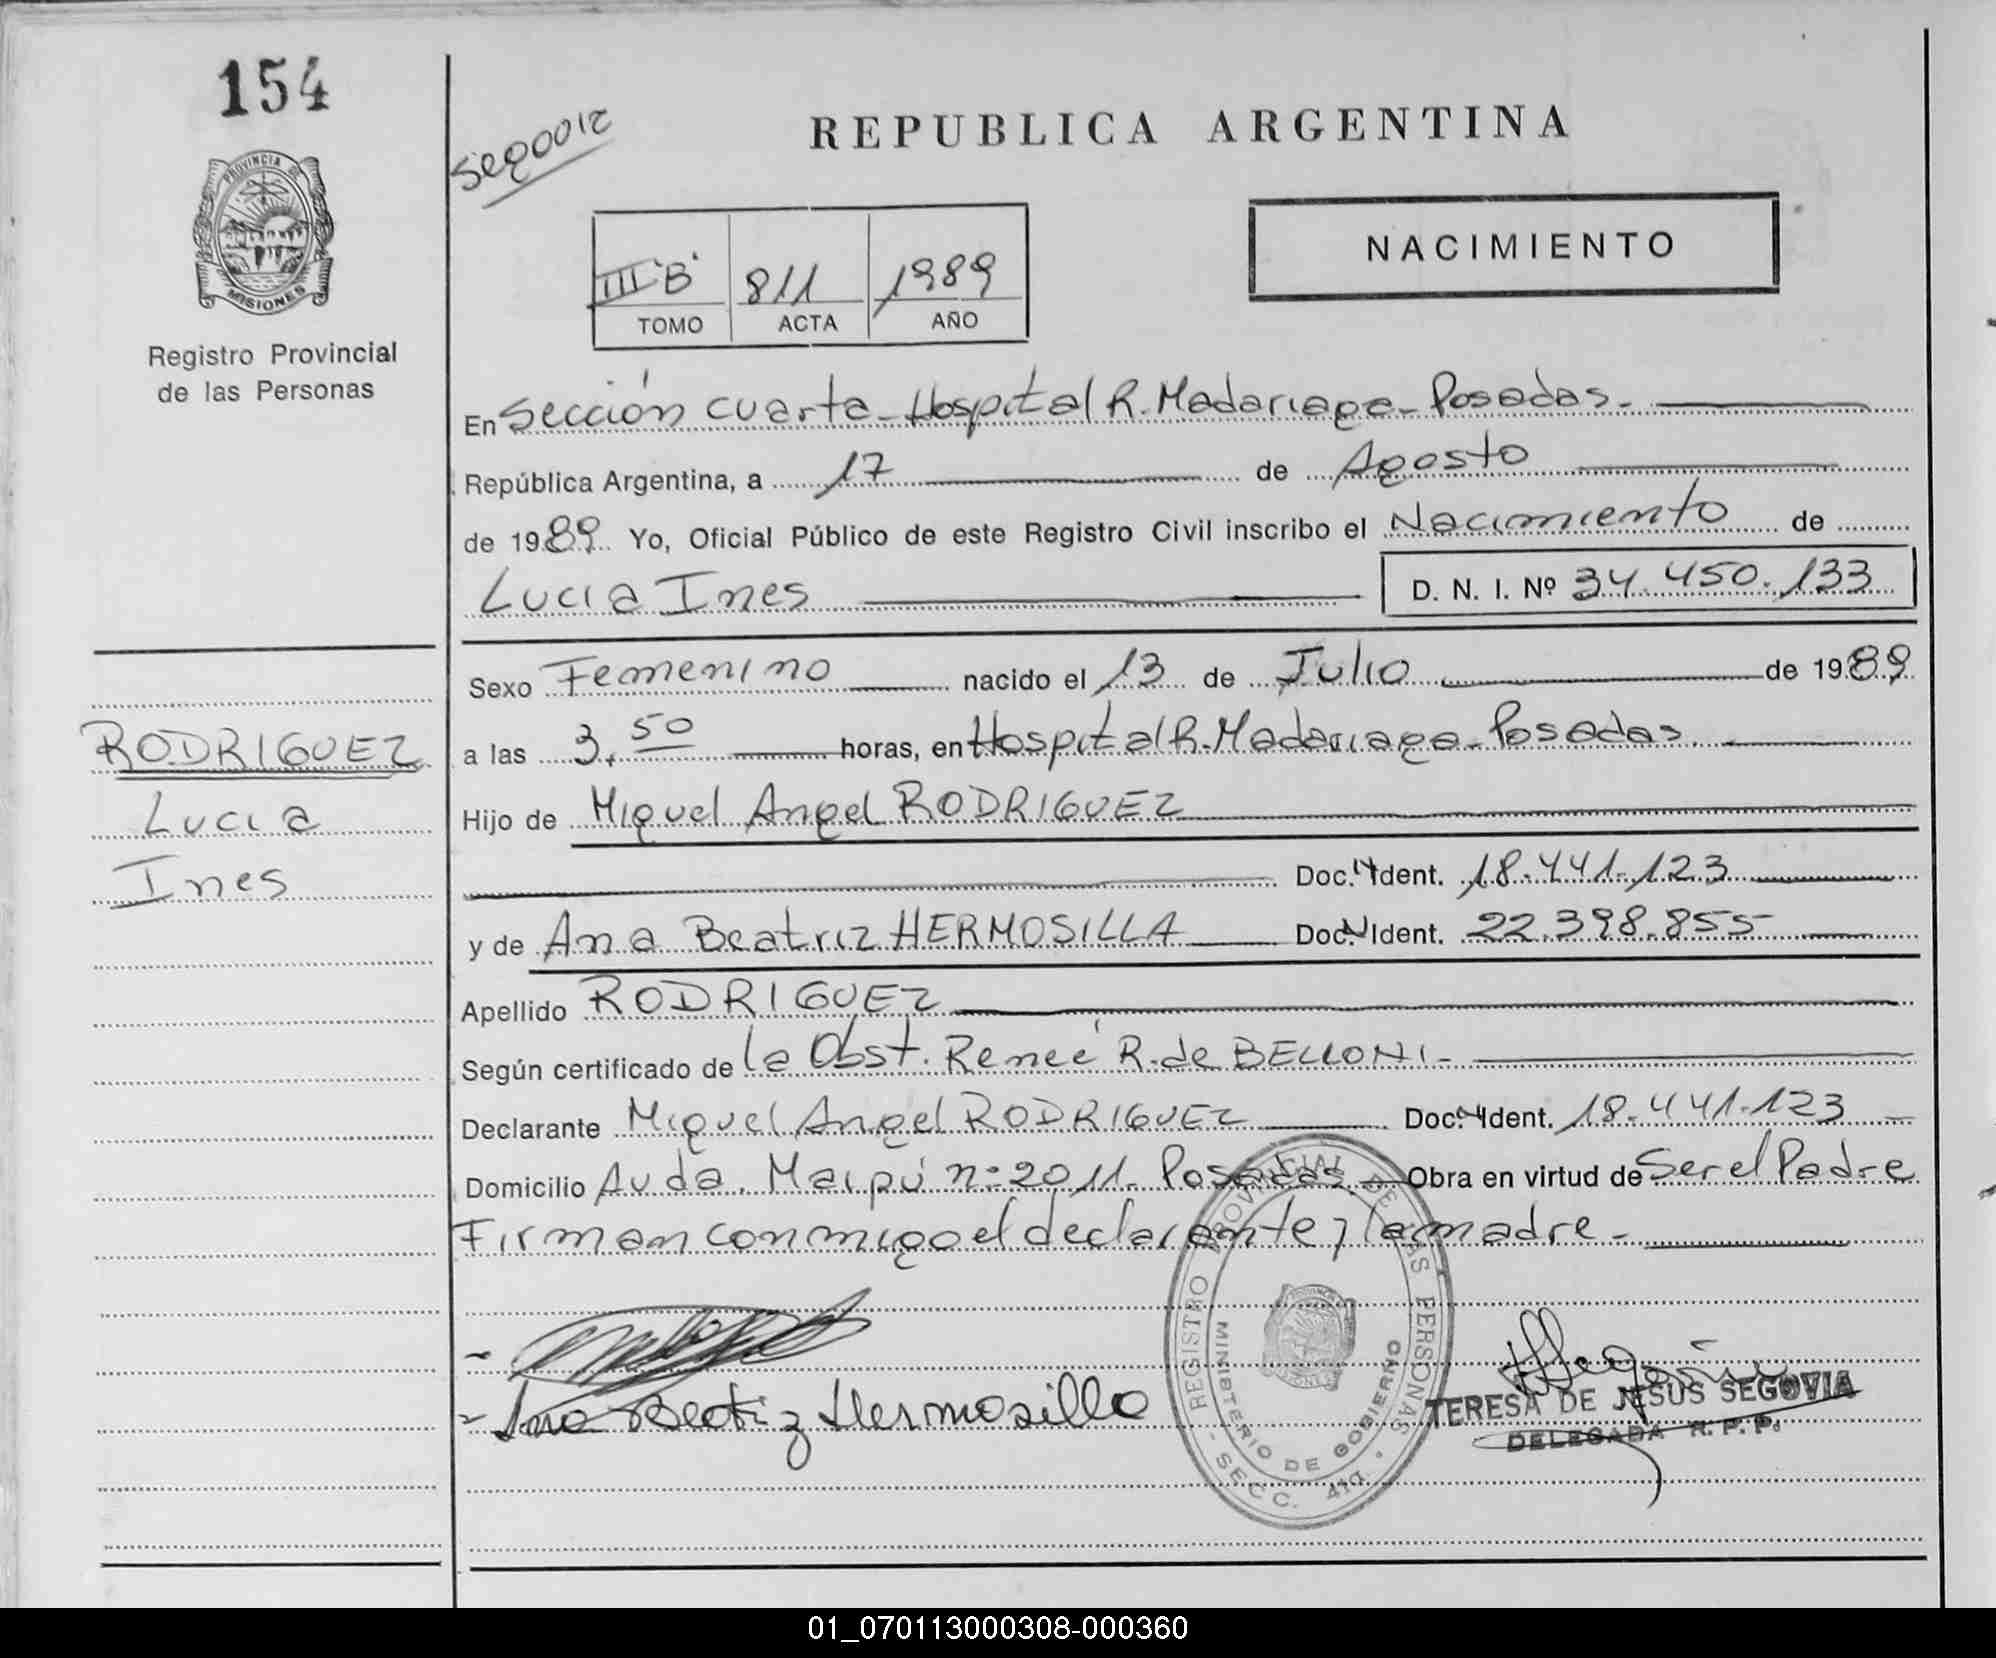 154
PROVINCIA DE
MISIONES
Registro Provincial
de las Personas
REPUBLICA ARGENTINA
NACIMIENTO
III "B" 811 1989
TOMO ACTA AÑO
En Sección cuarta - Hospital R. Madariaga - Posadas.-
República Argentina, a 17 de Agosto
de 1989 Yo, Oficial Público de este Registro Civil inscribo el Nacimiento de
Lucia Ines D. N. I. Nº 34.450.133
Sexo Femenino nacido el 13 de Julio de 1989
a las 3,50 horas, en Hospital R. Madariaga - Posadas
RODRIGUEZ
Lucia
Ines
Hijo de Miguel Angel RODRIGUEZ
Doc. Ident. 18.441.123
y de Ana Beatriz HERMOSILLA Doc. Ident. 22.398.855
Apellido RODRIGUEZ
Según certificado de la Obst. Reneé R. de BELLONI -
Declarante Miguel Angel RODRIGUEZ Doc. Ident. 18.441.123
Domicilio Avda. Maipú nº 2011 - Posadas. Obra en virtud de Ser el Padre
Firman conmigo el declarante y la madre -
Ana Beatriz Hermosilla
REGISTRO PROVINCIAL DE LAS PERSONAS
MINISTERIO DE GOBIERNO
- SECC. 4ta. -
TERESA DE JESUS SEGOVIA
DELEGADA R. P. P.
01_070113000308-000360